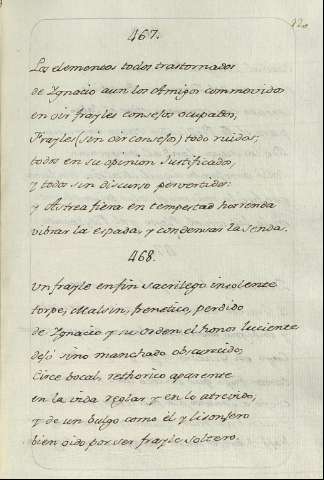 120
467.
Los elementos todos trastornados
de Ygnacio aun los Amigos commovidos
en oir frayles consejos ocupados,
Frayles (sin oir consejos) todo ruidos;
todos en su opinion Justificados,
y todos sin discurso pervertidos:
y Astrea fiera en tempestad horrenda
vibrar la espada, y condensar la senda.
468.
Un frayle enfin sacrilego insolente
torpe, Malsin, frenetico, perdido
de Ygnacio y su Orden el honor luciente
dejó sino manchado obscurecido,
Circe bocal, rethorico aparente
en la vida reglar y en lo atrevido,
y de un bulgo como él y lisonjero
bien oido por ser frayle soltero.